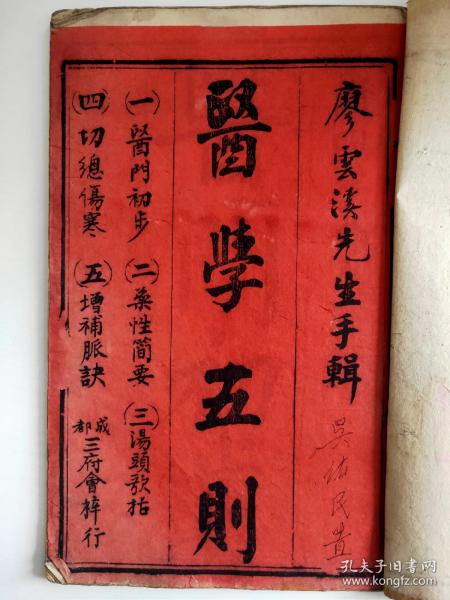 廖雲溪先生手輯
吳佑民置
醫學五則
㊀醫門初步 ㊁藥性簡要 ㊂湯頭歌括
㊃切總傷寒 ㊄增補脈訣 成都三府會梓行
孔夫子旧书网
www.kongfz.com